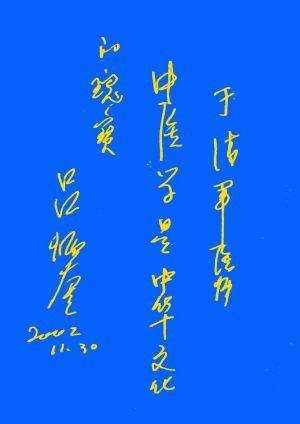 于洁军医师
中医学是中华文化
的瑰宝
吕炳奎
2002
11.30